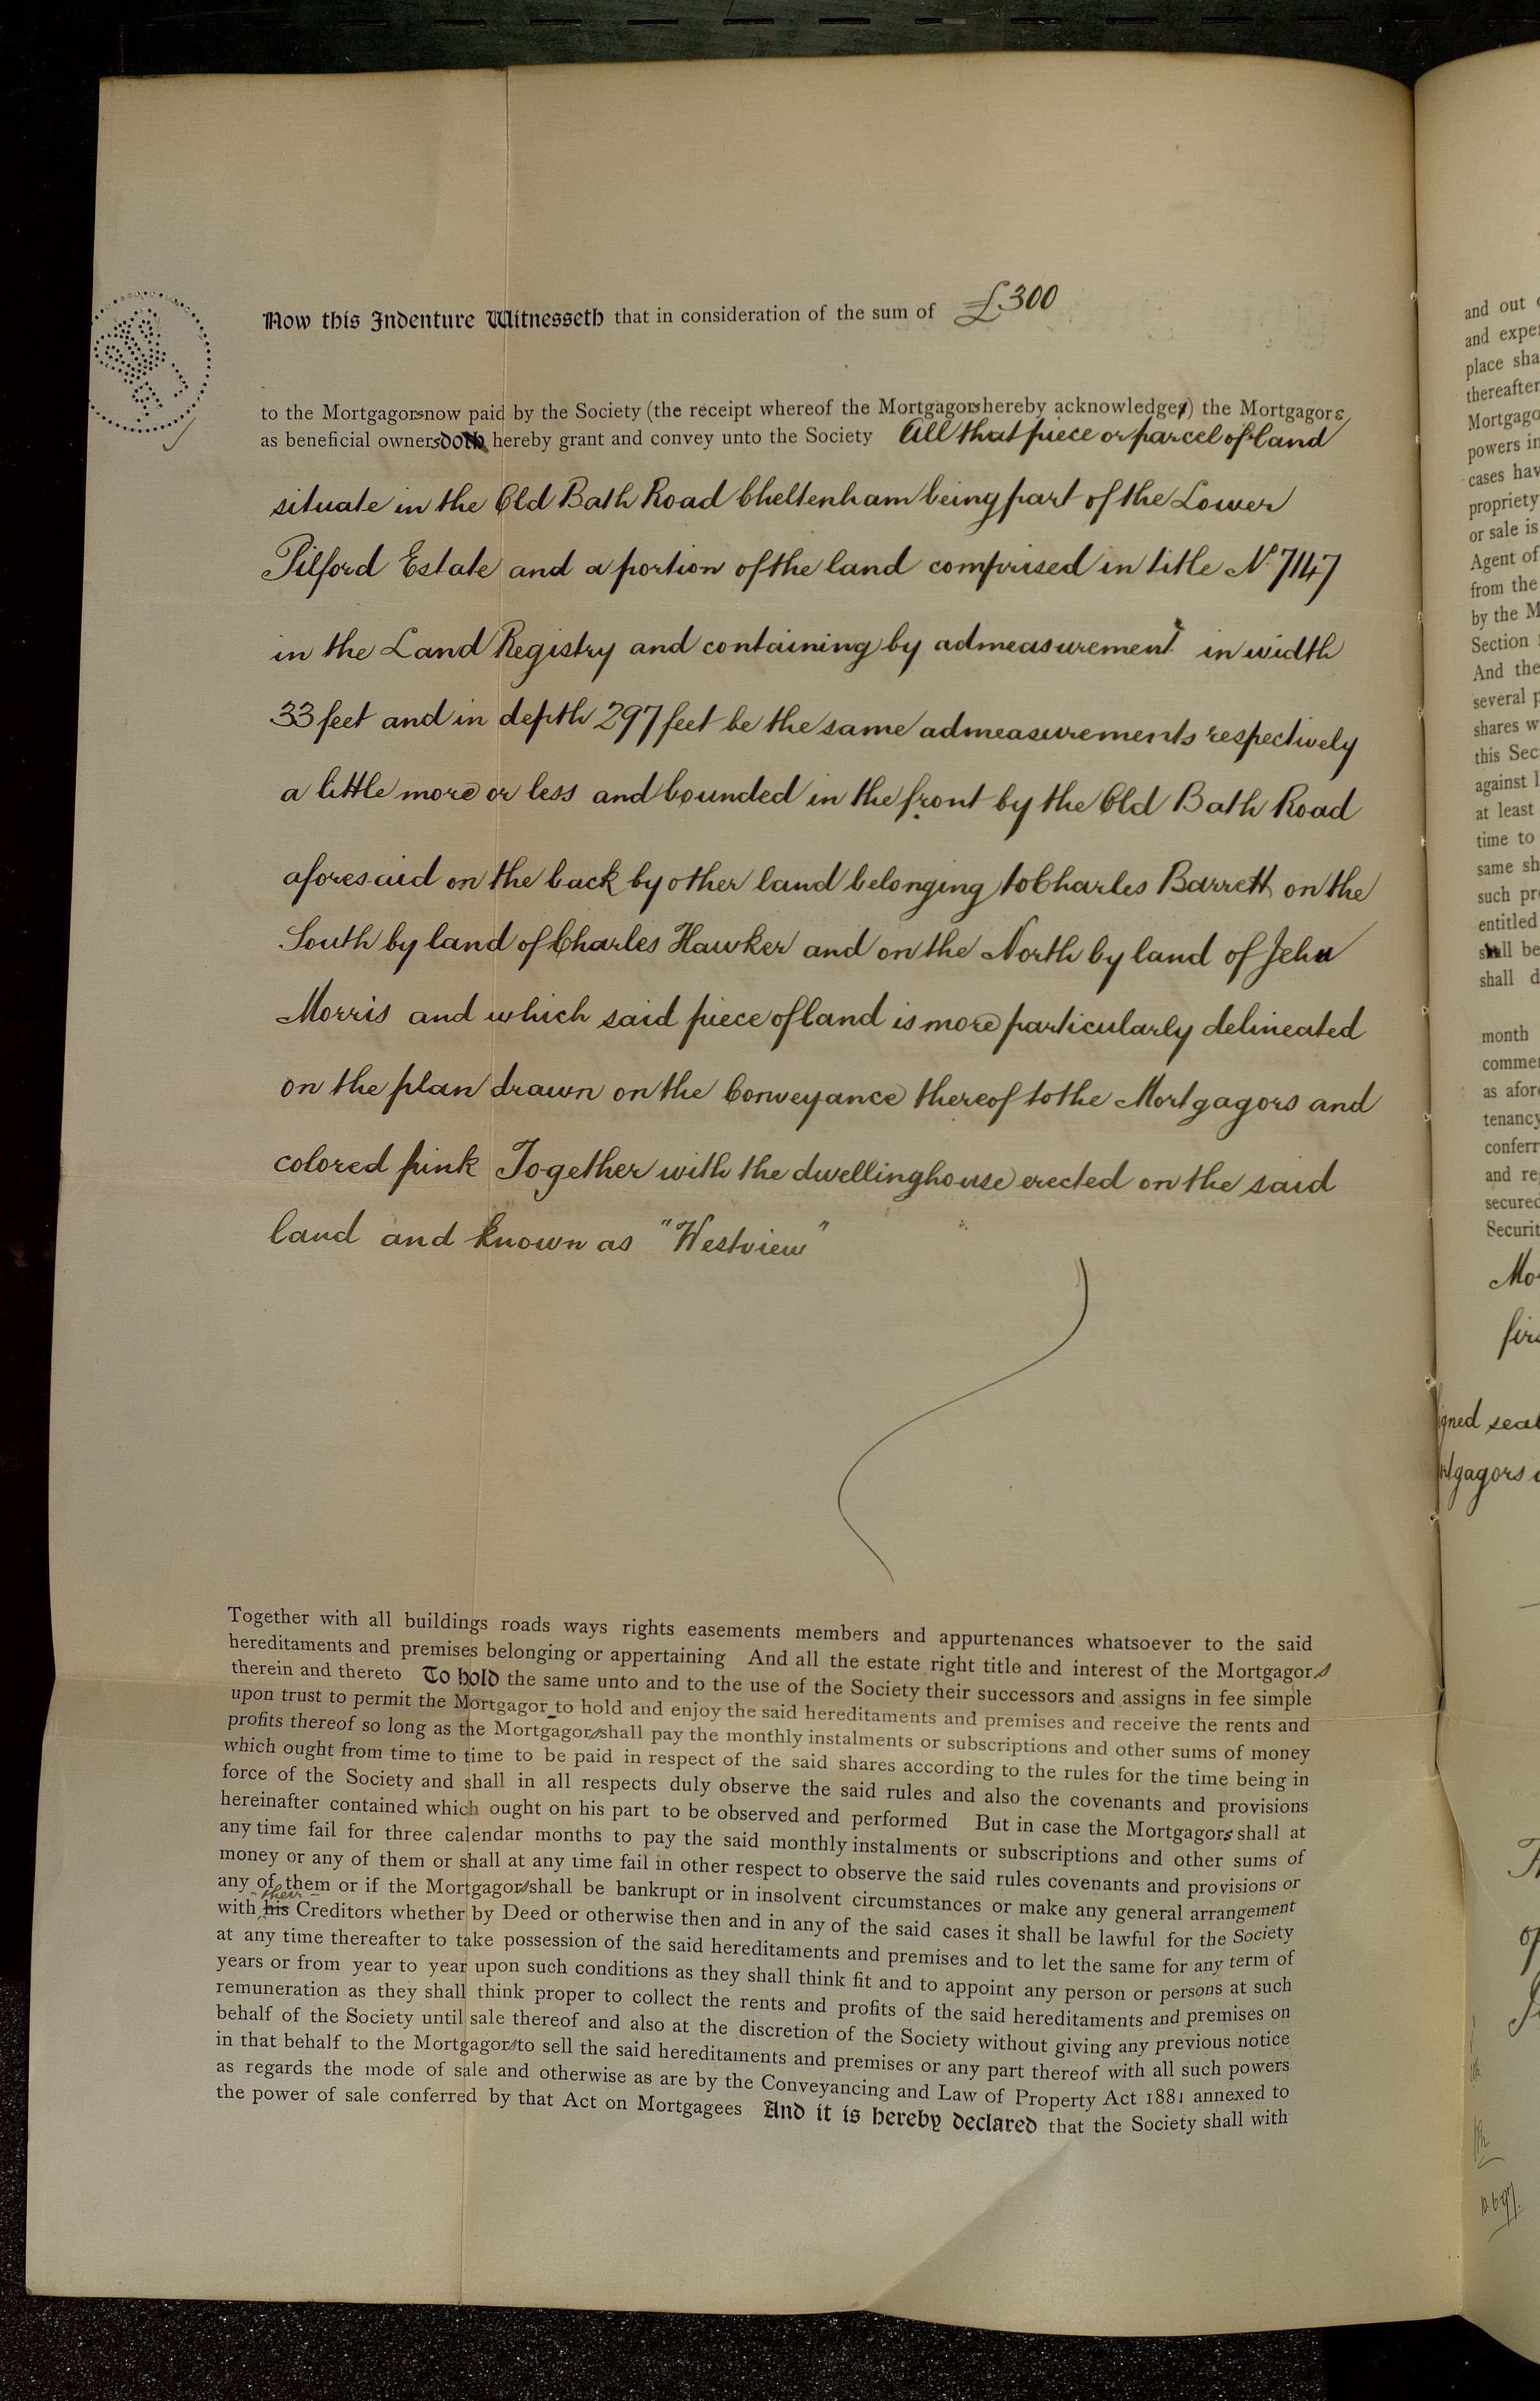 Now this Indenture Witnesseth that in consideration of the sum of £300
to the Mortgagors now paid by the Society (the receipt whereof the Mortgagors hereby acknowledge) the Mortgagors
as beneficial owners doth hereby grant and convey unto the Society All that piece or parcel of land
situate in the Old Bath Road Cheltenham being part of the Lower
Pilford Estate and a portion of the land comprised in title No. 7147
in the Land Registry and containing by admeasurement in width
33 feet and in depth 297 feet be the same admeasurements respectively
a little more or less and bounded in the front by the Old Bath Road
aforesaid on the back by other land belonging to Charles Barrett on the
South by land of Charles Hawker and on the North by land of John
Morris and which said piece of land is more particularly delineated
on the plan drawn on the Conveyance thereof to the Mortgagors and
colored pink Together with the dwellinghouse erected on the said
land and known as "Westview"
Together with all buildings roads ways rights easements members and appurtenances whatsoever to the said
hereditaments and premises belonging or appertaining And all the estate right title and interest of the Mortgagors
therein and thereto To hold the same unto and to the use of the Society their successors and assigns in fee simple
upon trust to permit the Mortgagor to hold and enjoy the said hereditaments and premises and receive the rents and
profits thereof so long as the Mortgagors shall pay the monthly instalments or subscriptions and other sums of money
which ought from time to time to be paid in respect of the said shares according to the rules for the time being in
force of the Society and shall in all respects duly observe the said rules and also the covenants and provisions
hereinafter contained which ought on his part to be observed and performed But in case the Mortgagors shall at
any time fail for three calendar months to pay the said monthly instalments or subscriptions and other sums of
money or any of them or shall at any time fail in other respect to observe the said rules covenants and provisions or
any of them or if the Mortgagors shall be bankrupt or in insolvent circumstances or make any general arrangement
with their his Creditors whether by Deed or otherwise then and in any of the said cases it shall be lawful for the Society
at any time thereafter to take possession of the said hereditaments and premises and to let the same for any term of
years or from year to year upon such conditions as they shall think fit and to appoint any person or persons at such
remuneration as they shall think proper to collect the rents and profits of the said hereditaments and premises on
behalf of the Society until sale thereof and also at the discretion of the Society without giving any previous notice
in that behalf to the Mortgagors to sell the said hereditaments and premises or any part thereof with all such powers
as regards the mode of sale and otherwise as are by the Conveyancing and Law of Property Act 1881 annexed to
the power of sale conferred by that Act on Mortgagees And it is hereby declared that the Society shall with
and out
and
place
thereafter
powers in
cases
propriety
or sale is
Agent of
from the
by the
Section
And the
several
shares
this
against
at least
time to
same
such
entitled
shall be
shall
month
as
tenancy
and